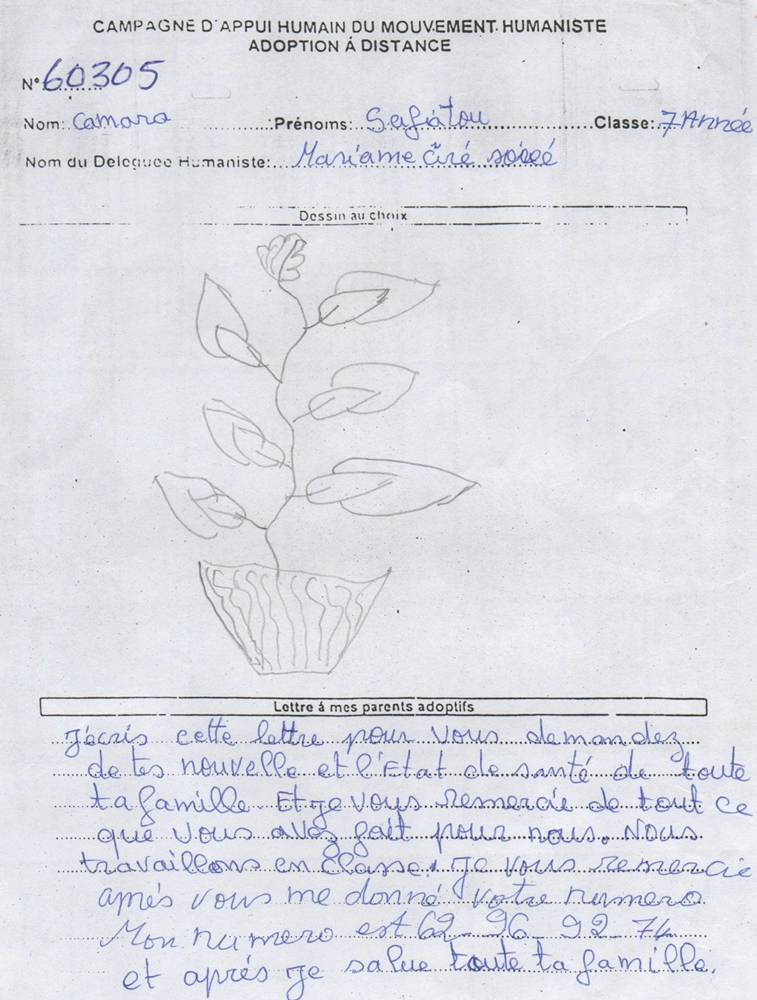 CAMPAGNE D'APPUI HUMAIN DU MOUVEMENT HUMANISTE
ADOPTION Á DISTANCE
N° 60305
Nom: Camara Prénoms: Safiatou Classe: 7 Année
Nom du Deleguee Humaniste: Mariame Ciré
Dessin au choix
Lettre á mes parents adoptifs
J'écris cette lettre pour vous demandez
de tes nouvelle et l'Etat de santé de toute
ta famille. Et je vous remercie de tout ce
que vous avez fait pour nous. Nous
travaillons en classe. Je vous remercie
aprés vous me donné votre numero
Mon numero est 62_96_92_74
et aprés je salue toute ta famille.